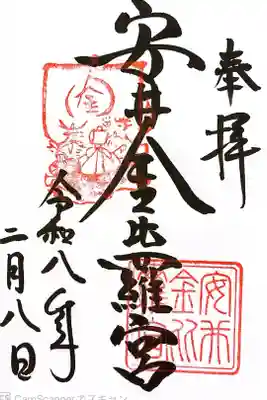 奉拝
安井金比羅宮
令和八年
二月八日
金
安井
金比
羅宮
CamScannerでスキャン